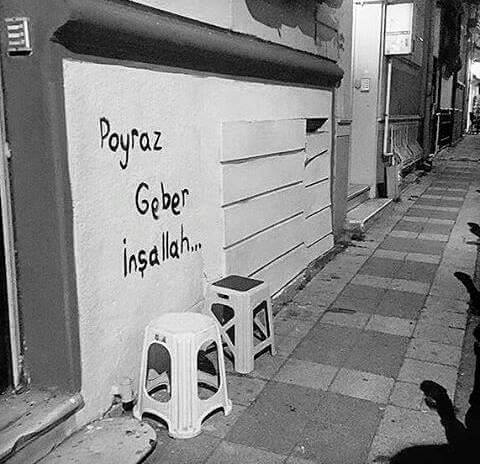 Poyraz
Geber
inşallah...